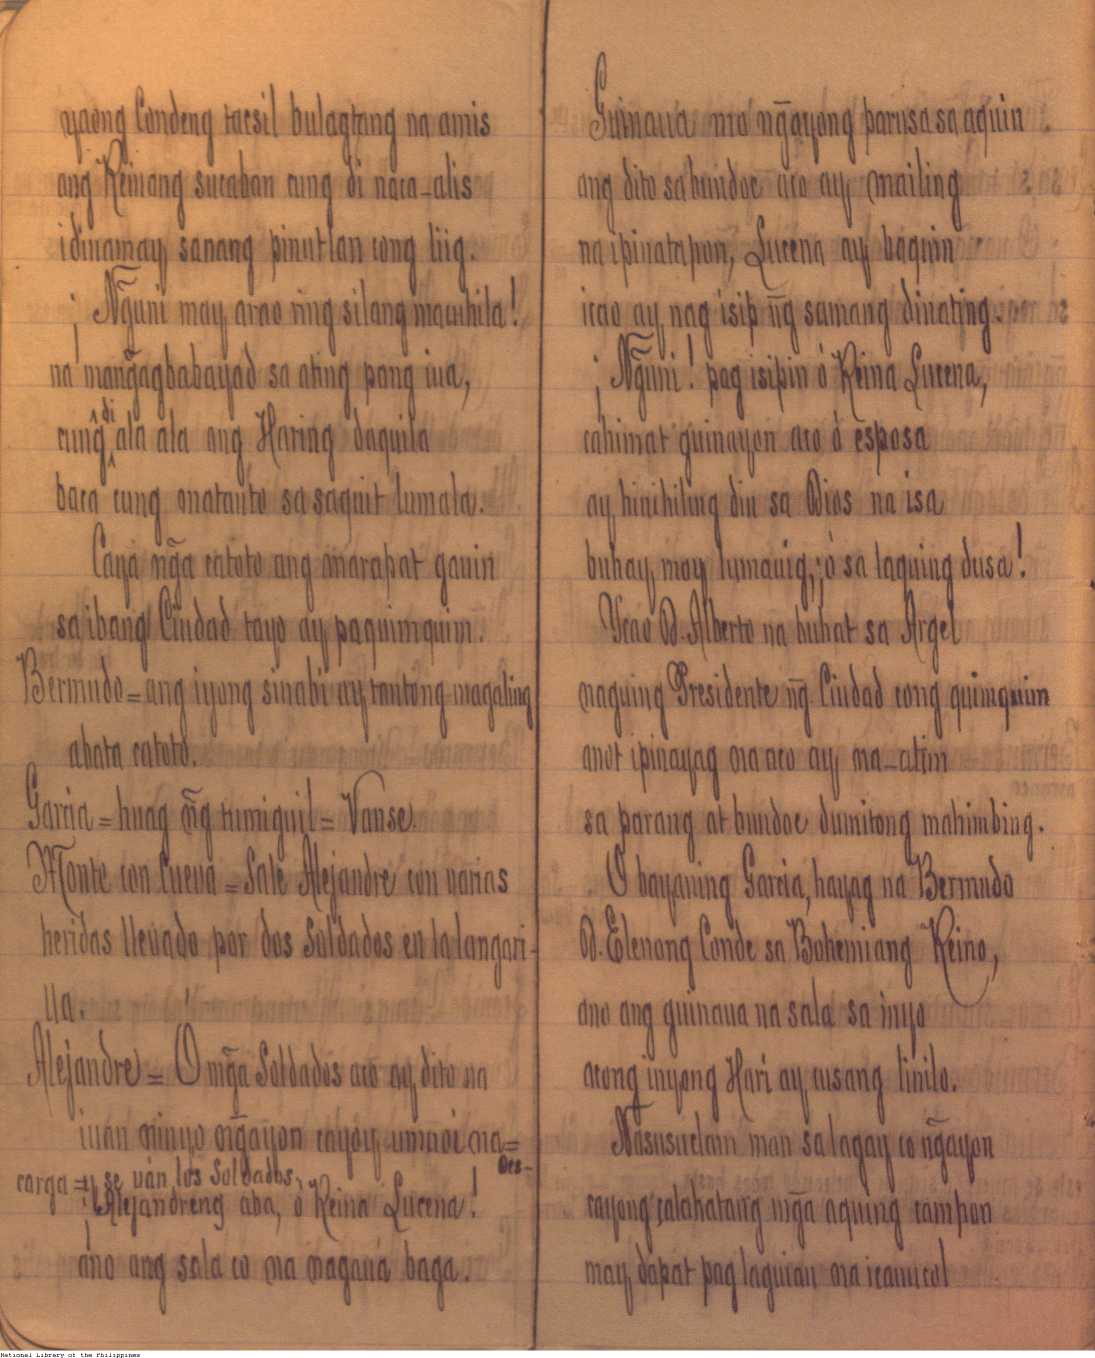 yaong Condeng tacsil bulagtang na amis
ang Reinang sucaban cung di naca-alis
idinamay sanang pinutlan cong liig.
¡Ñguni may arao ring silang macuhila!
na mang̃agbabayad sa ating pang iua,
cung di ala ala ang Haring daquila
baca cung matanto sa saguit lumala.
Caya ng̃a catoto ang marapat gauin
sa ibang Ciudad tayo ay paquimquim.
Bermudo = ang iyong sinabi ay tantong magaling
abata catoto.
Garcia = huag ng̃ tumiguil = Vanse.
Monte con Cueva = Sale Alejandre con varias
heridas llevado por dos Soldados en la langari-
lla.
Alejandre = O mg̃a Soldados aco ay dito na
iuan ninyo ng̃ayon cayoy umuoi na = Des-
carga = y se ván los Soldados,
¡Alejandreng aba, ó Reina Lucena!
ano ang sala co na magaua baga.
Guinaua mo ng̃ayong parusa sa aquin
ang dito sa bundoc aco ay mailing
na ipinatapon, Lucena ay baquin
icao ay nag isip ng̃ samang dinating.
¡Ñguni! pag isipin ó Reina Lucena,
cahimat guinayon aco ó esposa
ay hinihiling din sa Dios na isa
buhay, moy lumauig, ó sa laguing dusa!
Ycao D. Alberto na buhat sa Argel
naguing Presidente ng̃ Ciudad cong quimquim
anot ipinayag na aco ay ma-atim
sa parang at bundoc dumitong mahimbing.
O bayaning Garcia, hayag na Bermudo
D. Elenong Conde sa Bohemiang Reino,
ano ang guinaua na sala sa inyo
acong inyong Hari ay cusang linilo.
Nasusuclam man sa lagay co ng̃ayon
cayong calahatang mg̃a aquing campon
may dapat pag laguian na icaucol